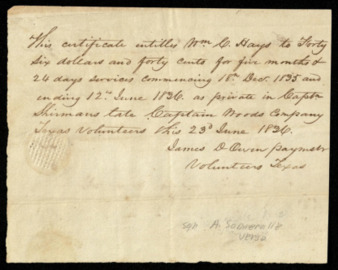 This certificate intitles Wm C Hays to Forty
six dollars and forty cents for five months &
24 days services commencing 18th Decr. 1835 and
ending 12th June 1836. as private in Captn
Shermans late Captain Woods Company
Texas Volunteers this 23d June 1836.
James D Owen paymstr
Volunteers Texas
A Somervelle